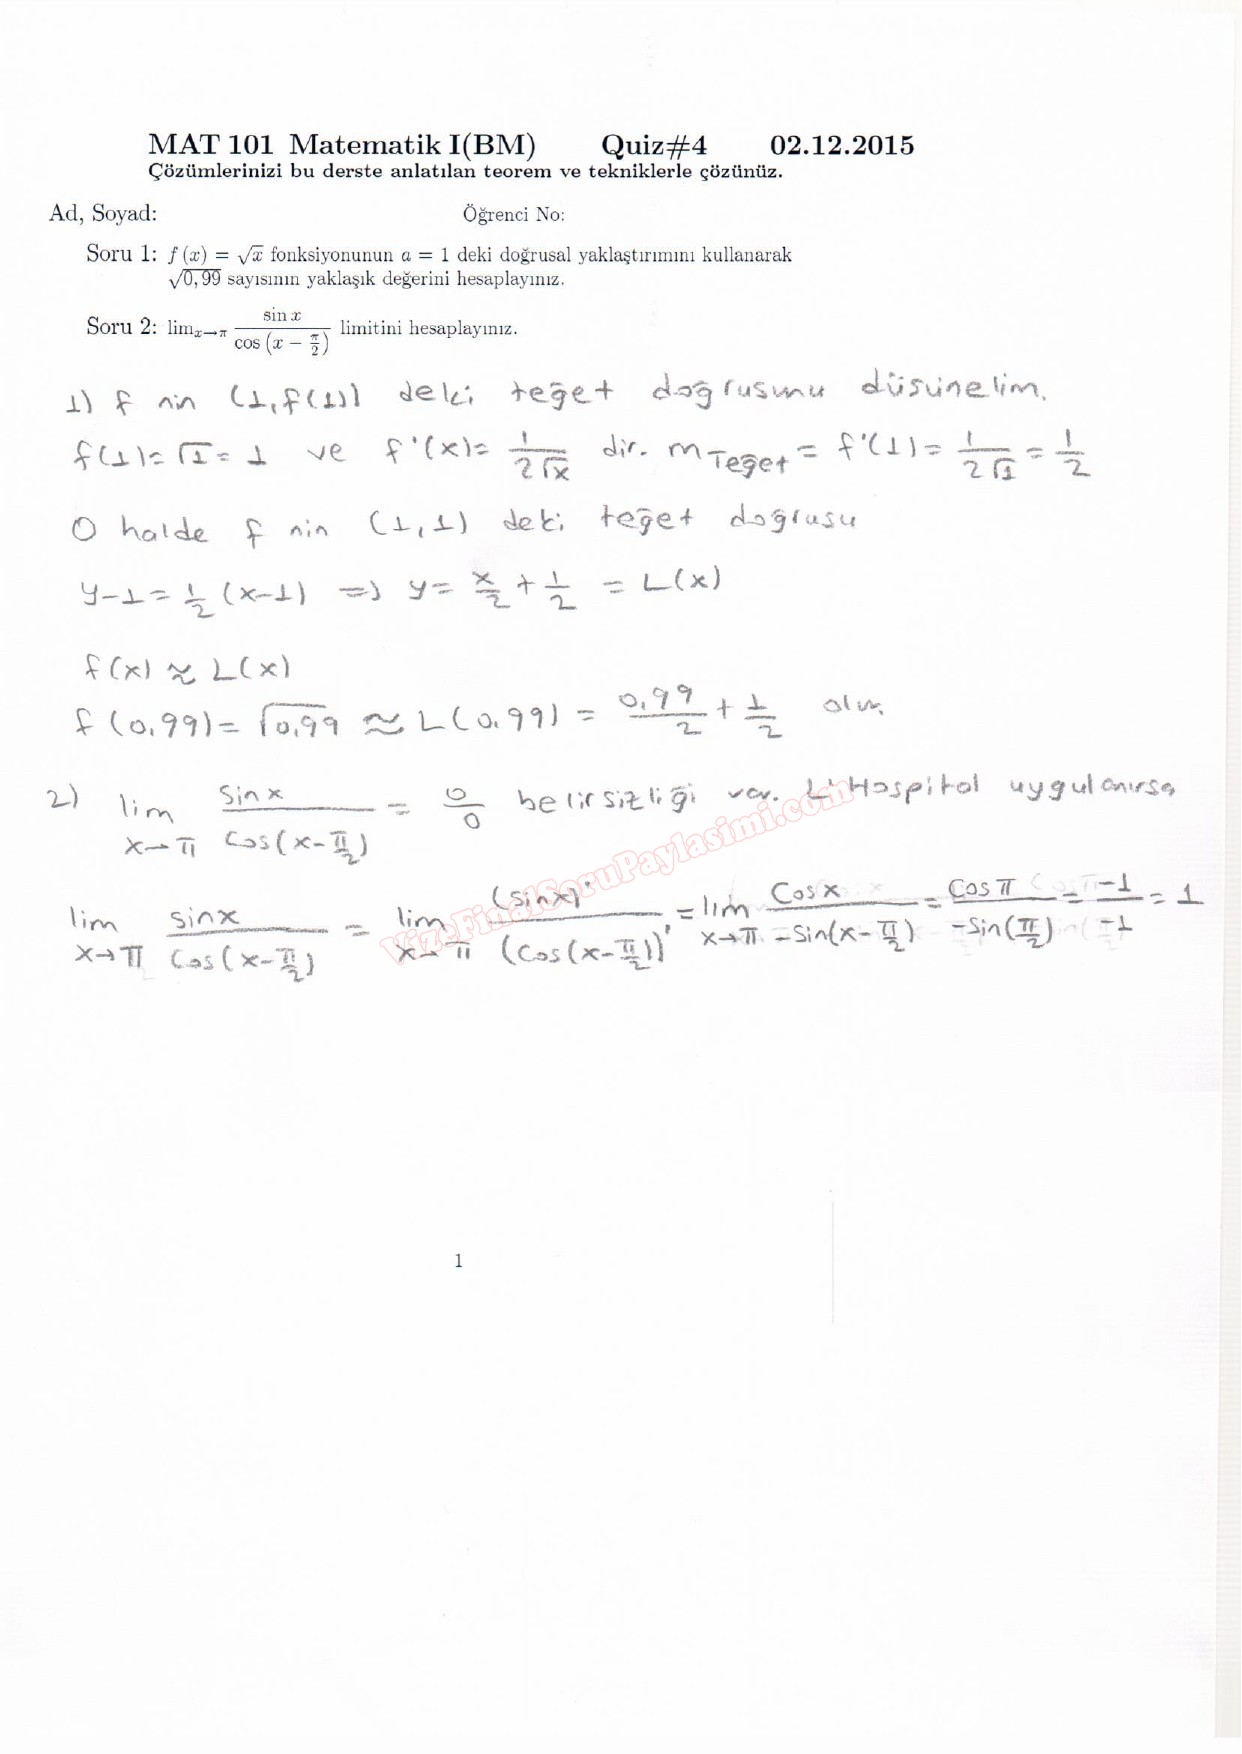 MAT 101 Matematik I(BM) Quiz#4 02.12.2015
Çözümlerinizi bu derste anlatılan teorem ve tekniklerle çözünüz.
Ad, Soyad: Öğrenci No:
Soru 1: f (x) = √x fonksiyonunun a = 1 deki doğrusal yaklaştırımını kullanarak
√0,99 sayısının yaklaşık değerini hesaplayınız.
Soru 2: lim x→π sin x / cos (x − π/2) limitini hesaplayınız.
1) f nin (1,f(1)) deki teğet doğrusunu düşünelim.
f(1)=√1=1 ve f'(x)= 1/(2√x) dir. m Teğet = f'(1)= 1/(2√1) = 1/2
O halde f nin (1,1) deki teğet doğrusu
y-1= 1/2 (x-1) => y= x/2 + 1/2 = L(x)
f(x) ≈ L(x)
f(0,99)= √0,99 ≈ L(0,99) = 0,99/2 + 1/2 olur.
2) lim x→π Sinx / Cos(x-π/2) = 0/0 belirsizliği var. L'Hospital uygulanırsa
lim x→π sinx / Cos(x-π/2) = lim x→π (sinx)' / (Cos(x-π/2))' = lim x→π Cosx / -Sin(x-π/2) = Cosπ / -Sin(π/2) = -1/-1 = 1
VizeFinalSoruPaylasimi.com
1